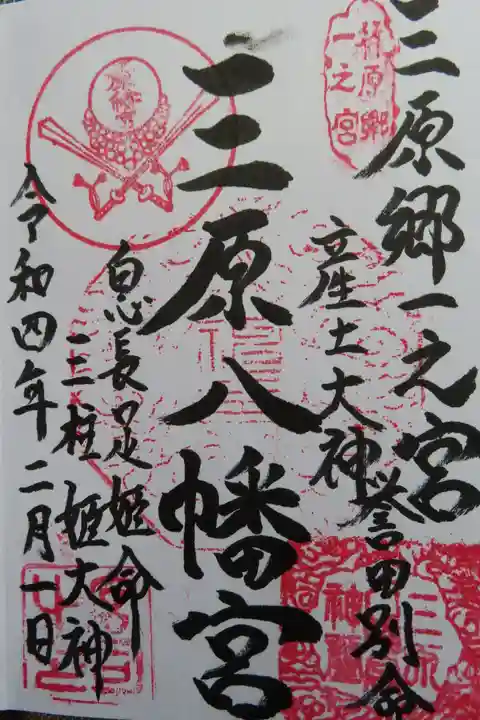 三原郷一之宮
産土大神
誉田別命
三原八幡宮
息長足姫命
三柱姫大神
令和四年二月一日
一之宮